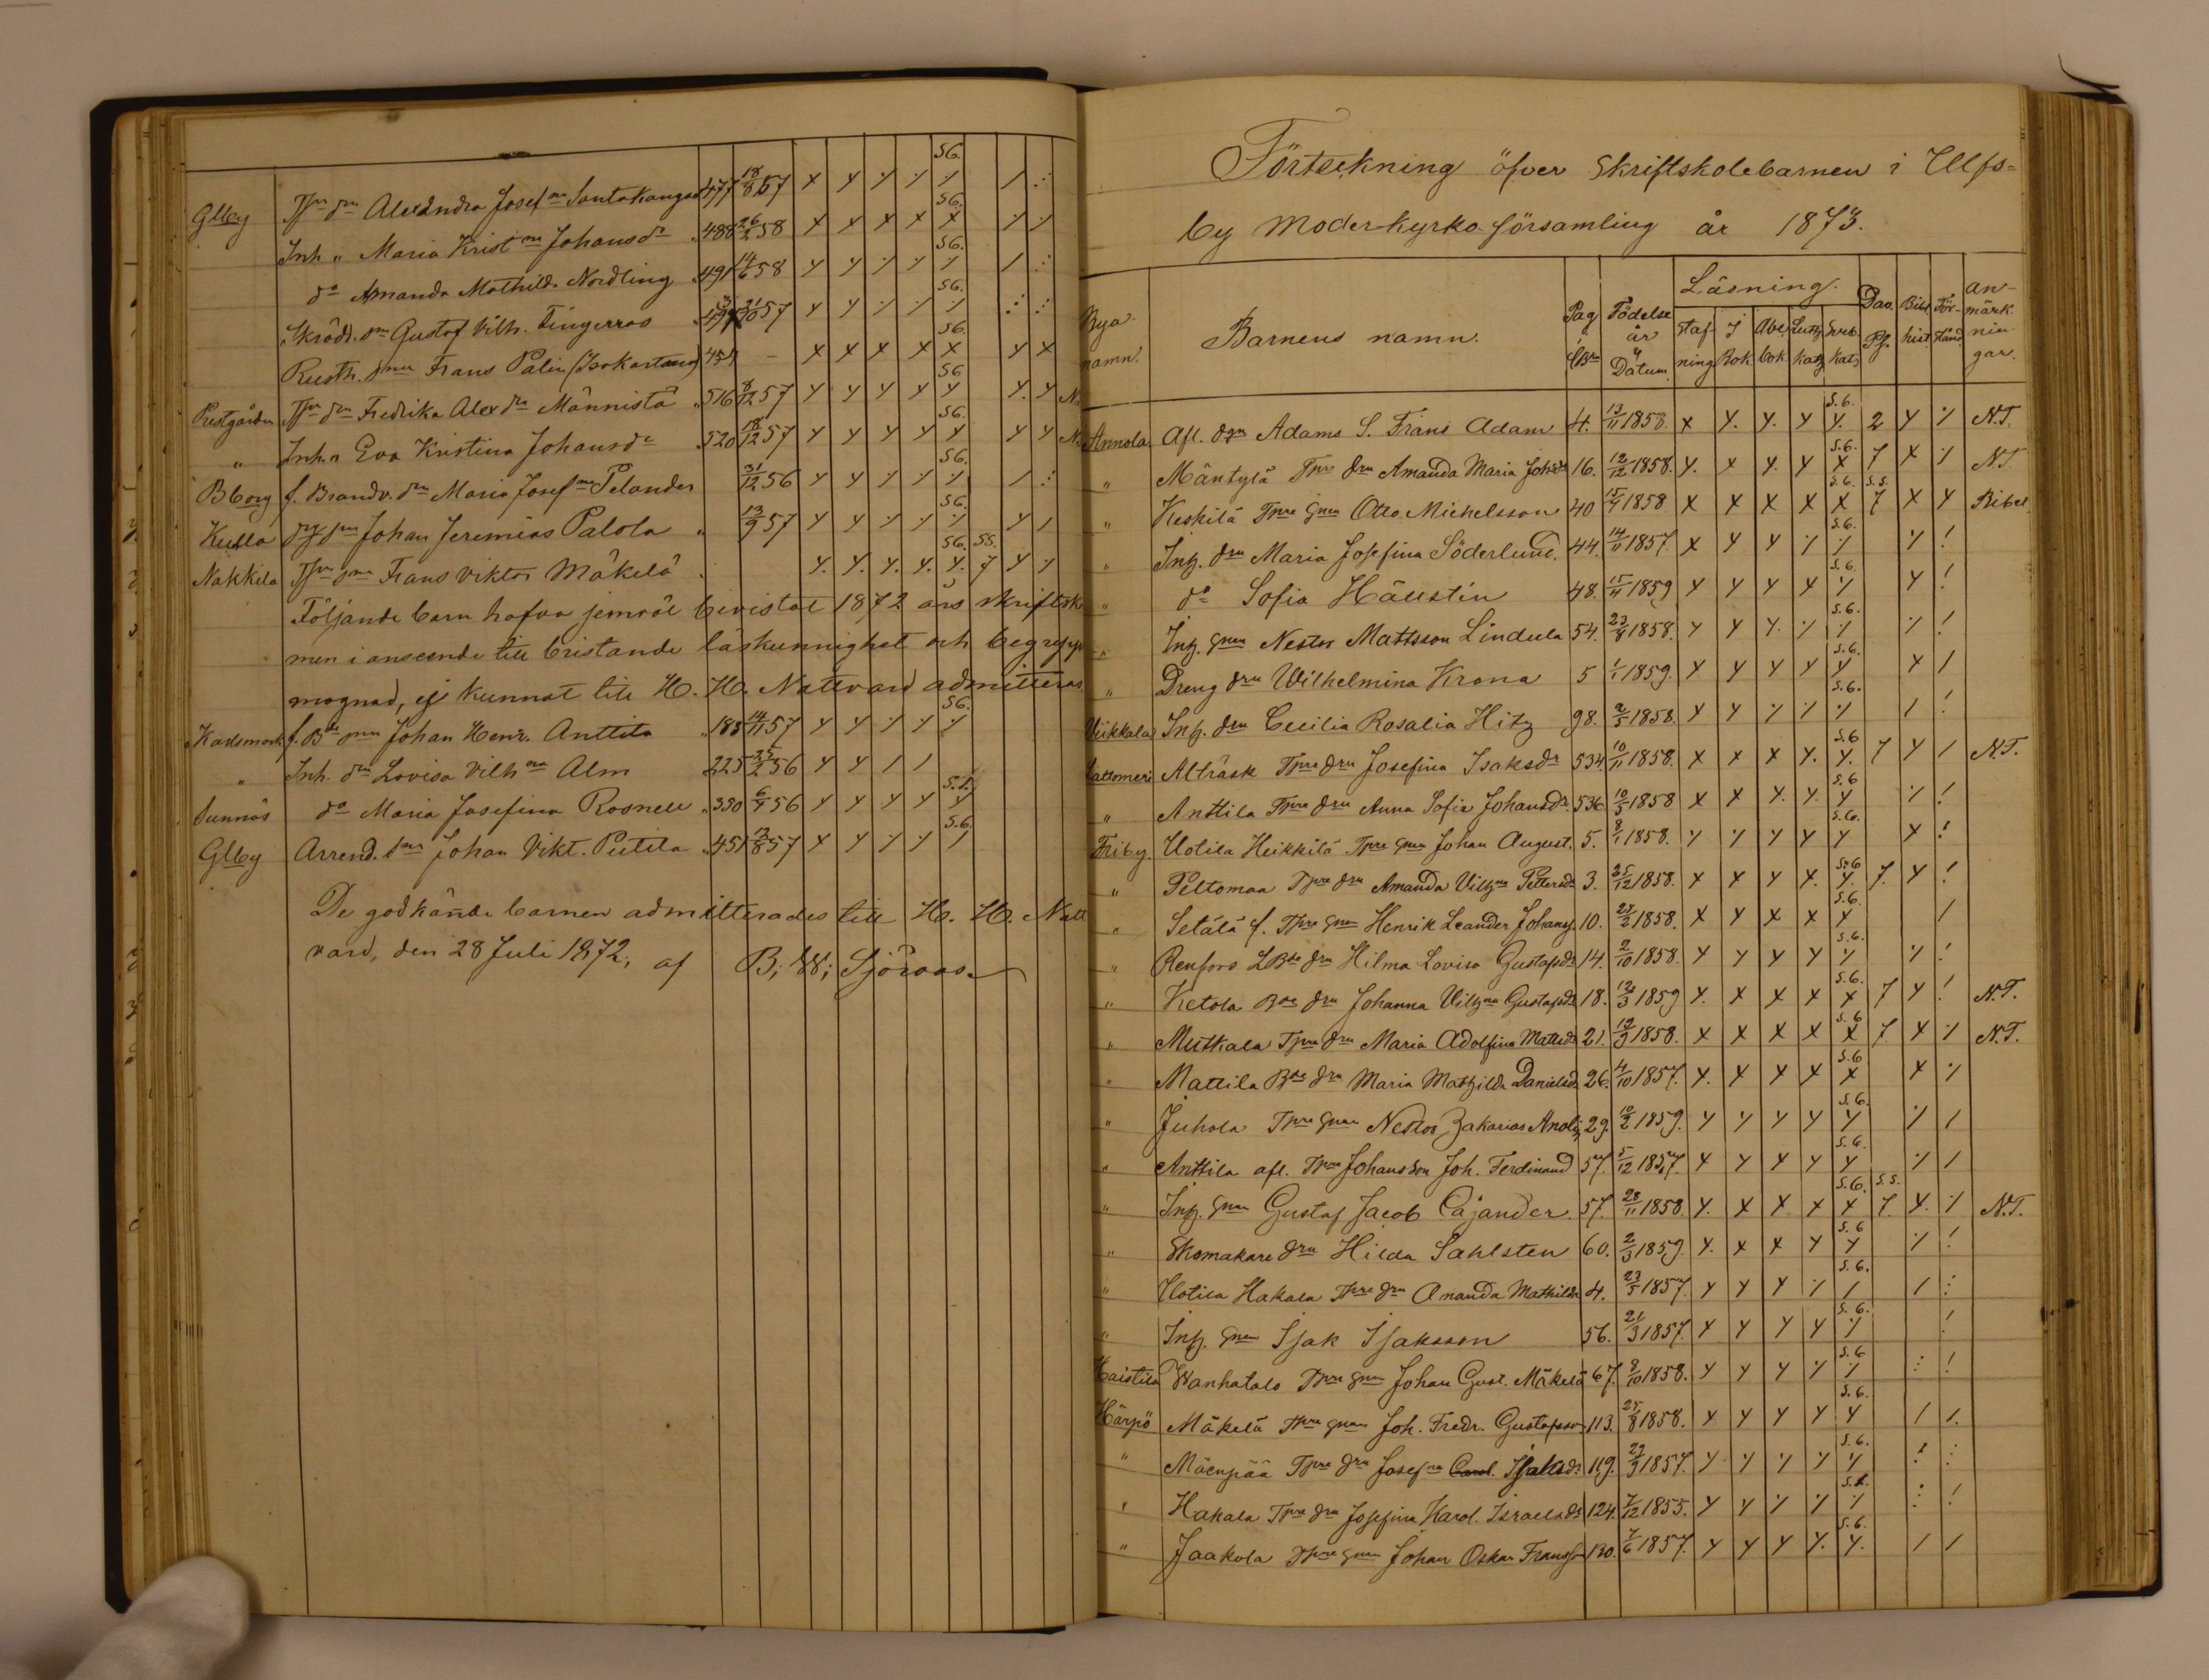 Glby Tpn drn Alexandra Josefna Santakangas 477 18/8 57 S6.
Inh. " Maria Kristna Johansdr 488 26/2 58 S6.
do Amanda Mathild. Nordling 491 14/6 58 S6.
Skrädd. sn Gustaf Vilh. Tingerroos 21/10 57 S6.
Rusth. snn Frans Palin (Isokartano) 454 - S6.
Prestgården Tpn drn Fredrika Alexdra Männistö 516 8/12 57 S6
" Inh. " Eva Kristina Johansdr 520 18/12 57 S6.
Bborg f. Brandv. drn Maria Josefna Pelander 31/12 56 S6.
Kulla Drg snn Johan Jeremias Palola 13/9 57 S6.
Nakkila Tpn snn Frans Viktor Mäkelä S6. SS. 7
Följande barn hafva jemväl bivistat 1872 års skriftsk
men i anseende till bristande läskunnighet och begrepps
mognad, ej kunnat till H. H. Nattvard admitteras
Karlsmark f. Bde snn Johan Henr. Anttila 185 14/11 57 S6.
" Inh. drn Lovisa Vilhna Alm 225 25/2 56
Sunnäs do Maria Josefina Rosnell 330 6/4 56
Glby Arrend. snn Johan Vikt. Pietila 451 13/8 57 S.6.
De godkände barnen admitterades till H. H. Natt
vard, den 28 Juli 1872, af B. W. Sjöroos
Förteckning öfver Skriftskolebarnen i Ulfs-
by Moder-Kyrko församling år 1873.
Läsning.
Bya namn. Barnens namn. Pag i Cbn Födelse år & Datum Stafning I Bok Abc bok Luth Katz Sveb Katz Dav. Ps. Bibl. hist Förstånd anmärkningar.
Annola Afl. Drgn Adams S. Frans Adam 4. 13/11 1858. S.6. 2 N.T.
" Mäntylä Tpre drn Amanda Maria Johsdr 16. 12/12 1858. S.6. 7 N.T
" Keskilä Tpre gnn Otto Michelsson 40 15/4 1858 S.6. S.S. 7 Bibel
" Inh. drn Maria Josefina Söderlund. 44. 14/11 1857. S.6.
" do Sofia Hällstin 48. 15/11 1859 S.6.
" Inh. gnn Nestor Mattsson Lindula 54. 23/8 1858. S.6.
" Dreng drn Wilhelmina Krona 5 1/1 1859. S.6.
Viikkala Inh. drn Cecilia Rosalia Hitz 98. 2/5 1858. S.6.
Lattomeri Alträsk Tpre drn Josefina Isaksdr 534 10/11 1858. S.6 7 N.T.
" Anttila Tpre drn Anna Sofia Johansdr 536 10/5 1858 S.6
Friby. Uotila Heikkilä Tpre gnn Johan August. 5. 8/1 1858. S.6.
" Peltomaa Tpre drn Amanda Vilhna Pettersdr 3. 25/12 1858. S.6 7.
" Setälä f. Tpre gnn Henrik Leander Johanss. 10. 25/2 1858. S.6.
" Renfors LBde drn Hilma Lovisa Gustafsdr 14. 2/10 1858. S.6.
" Ketola Bde drn Johanna Vilhna Gustafsdr 18. 12/3 1859 S.6. 7 N.T.
" Mutkala Tpre drn Maria Adolfina Mattsdr 21. 12/9 1858. S.6 7 N.T.
" Mattila Bde drn Maria Mathilda Danielsd. 26. 4/10 1857. S.6
" Juhola Tpre gnn Nestor Zakarias 29. 10/2 1859. S.6.
" Anttila afl. Tpre Johansson Joh. Ferdinand 57. 5/12 1857. S.6.
" Inh. gnn Gustaf Jacob Cajander 57. 28/11 1858. S.6. S.S. 7. N.T.
" Skomakare drn Hilda Sahlsten 60. 2/3 1859. S.6
" Uotila Hakala Tpre drn Amanda Mathilda 4. 23/5 1857. S.6.
" Inh. gnn Isak Isaksson 56. 21/3 1857. S.6.
Haistila Wanhatalo Tpre gnn Johan Gust. Mäkelä 67. 8/10 1858. S.6
Härpö Mäkelä Tpre gnn Joh. Fredr. Gustafsson 113. 25/8 1858. S.6.
" Mäenpää Tpre drn Josefna Carol. Isaksdr 119. 29/9 1857. S.6.
" Hakala Tpre drn Josefina Karol. Israelsdr 124. 7/12 1855.
" Jaakola Tpre gnn Johan Oskar Franss. 130. 7/6 1857. S.6.